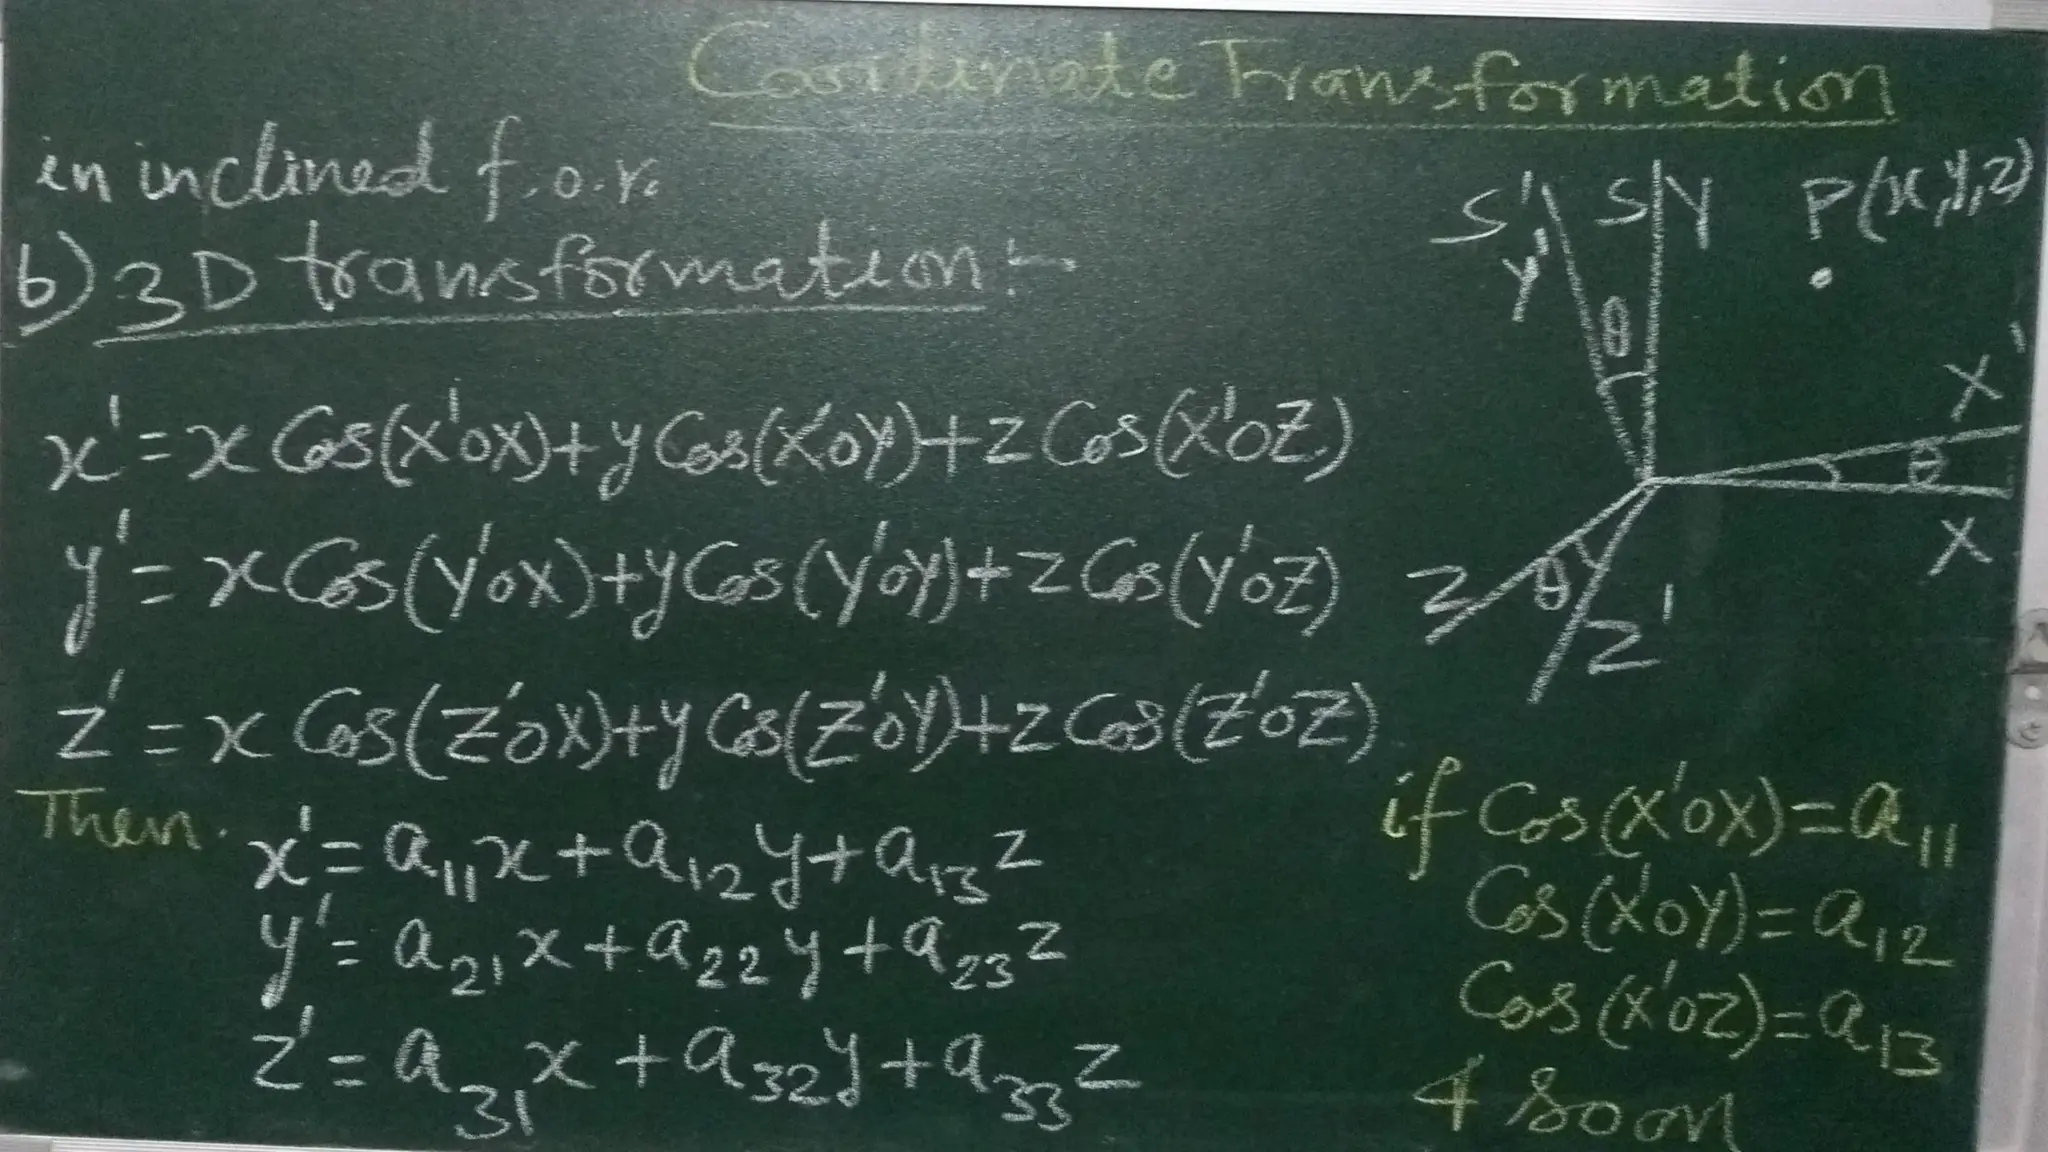 Coordinate Transformation
in inclined f.o.r.
b) 3D transformation:-
x' = x Cos(X'OX) + y Cos(X'OY) + z Cos(X'OZ)
y' = x Cos(Y'OX) + y Cos(Y'OY) + z Cos(Y'OZ)
z' = x Cos(Z'OX) + y Cos(Z'OY) + z Cos(Z'OZ)
Then x' = a₁₁x + a₁₂y + a₁₃z
y' = a₂₁x + a₂₂y + a₂₃z
z' = a₃₁x + a₃₂y + a₃₃z
S' S Y P(x,y,z)
Y'
θ
X'
θ
X
Z θ Z'
if Cos(X'OX) = a₁₁
Cos(X'OY) = a₁₂
Cos(X'OZ) = a₁₃
& soon